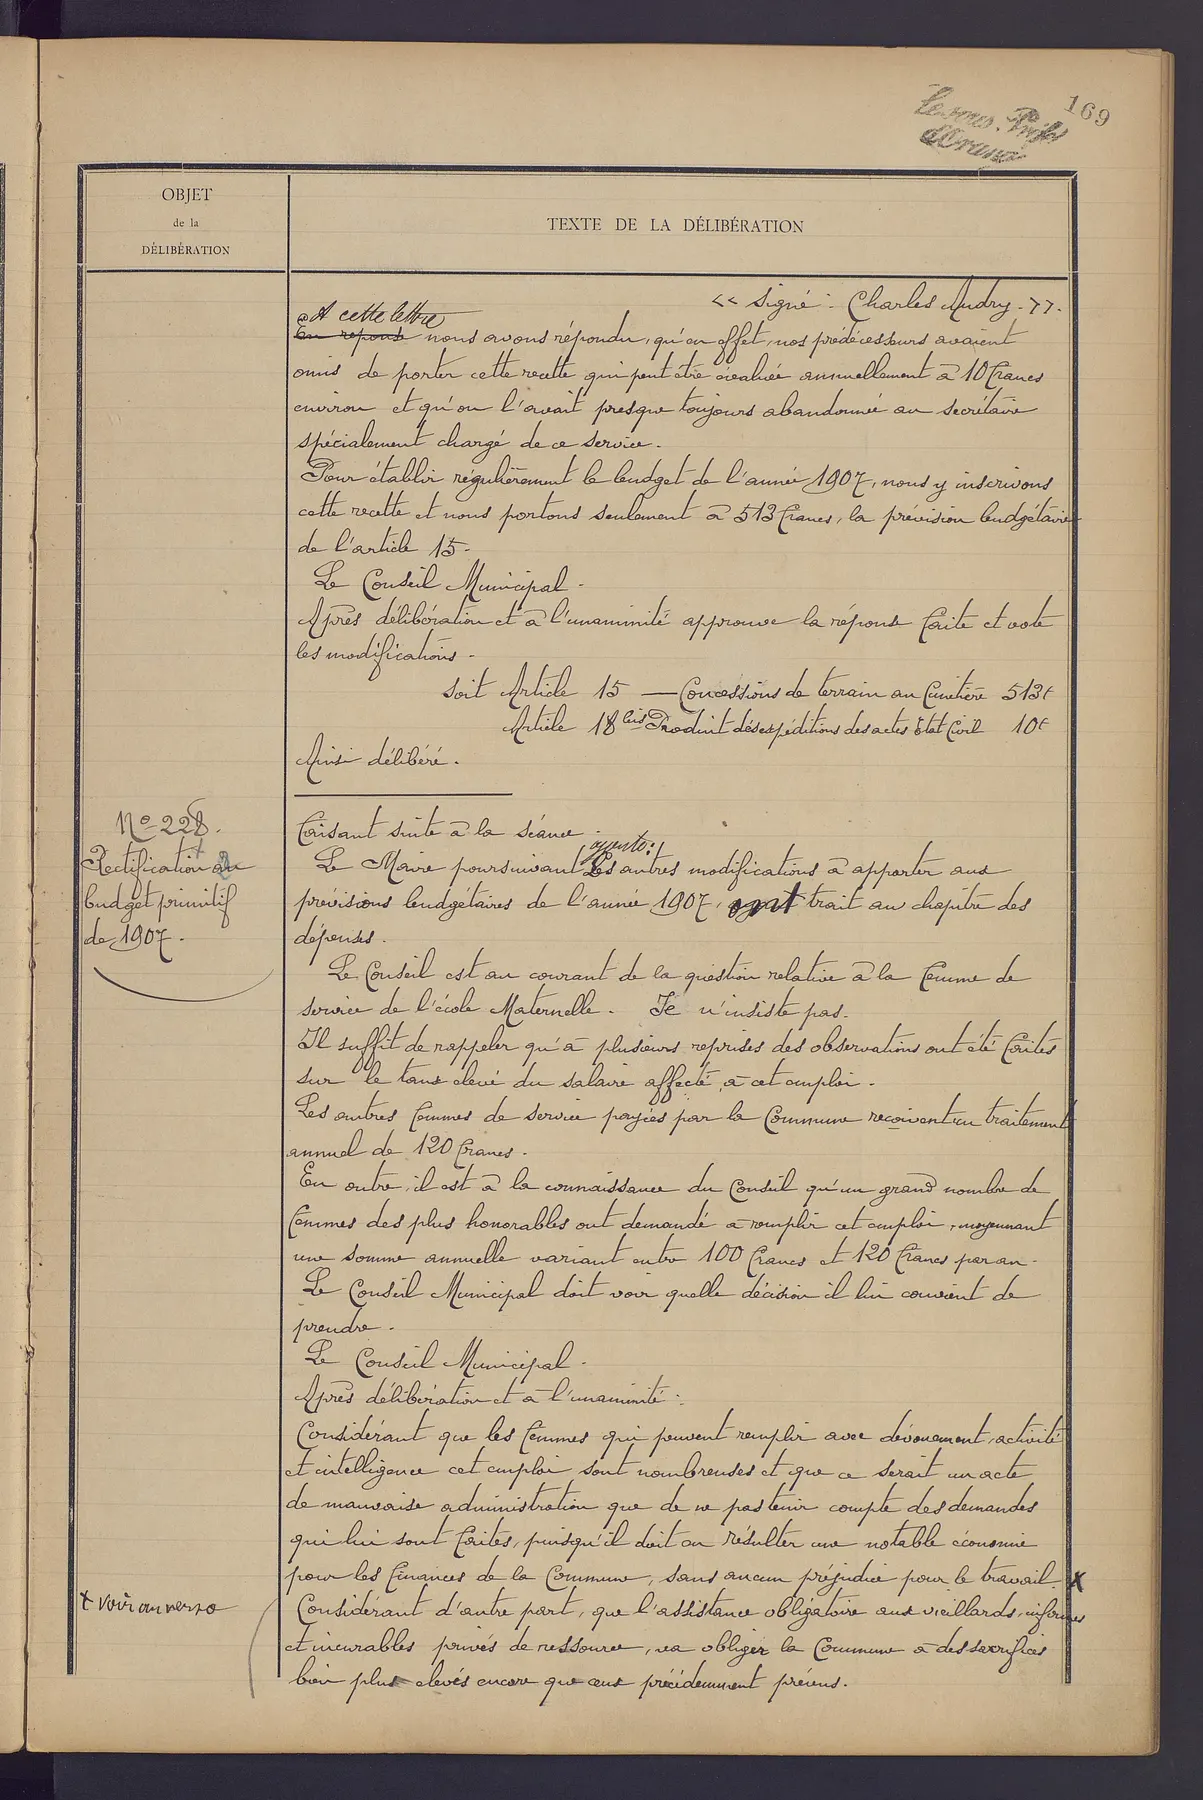 169
OBJET
de la
DÉLIBÉRATION
TEXTE DE LA DÉLIBÉRATION
<< Signé : Charles Audry. >>.
A cette lettre
En réponse nous avons répondu, qu'en effet, nos prédécesseurs avaient
omis de porter cette recette qui peut être évaluée annuellement à 10 francs
environ et qu'on l'avait presque toujours abandonnée au secrétaire
spécialement chargé de ce service.
Pour établir régulièrement le budget de l'année 1907, nous y inscrivons
cette recette et nous portons seulement à 513 francs, la prévision budgétaire
de l'article 15.
Le Conseil Municipal.
Après délibération et à l'unanimité approuve la réponse faite et vote
les modifications.
soit Article 15 — Concessions de terrain au Cimetière 513f
Article 18 bis Produit des expéditions des actes Etat Civil 10f
Ainsi délibéré.
No 228.
Rectification au
budget primitif
de 1907.
Faisant suite à la séance.
ajoute:
Le Maire poursuivant Les autres modifications à apporter aux
prévisions budgétaires de l'année 1907, ont trait au chapitre des
dépenses.
Le Conseil est au courant de la question relative à la femme de
service de l'école Maternelle. Je n'insiste pas.
Il suffit de rappeler qu'à plusieurs reprises des observations ont été faites
sur le taux élevé du salaire affecté à cet emploi.
Les autres femmes de service payées par la Commune reçoivent un traitement
annuel de 120 francs.
En outre, il est à la connaissance du Conseil qu'un grand nombre de
femmes des plus honorables ont demandé à remplir cet emploi, moyennant
une somme annuelle variant entre 100 francs et 120 francs par an.
Le Conseil Municipal doit voir quelle décision il lui convient de
prendre.
Le Conseil Municipal.
Après délibération et à l'unanimité :
Considérant que les femmes qui peuvent remplir avec dévouement, activité
et intelligence cet emploi, sont nombreuses et que ce serait un acte
de mauvaise administration que de ne pas tenir compte des demandes
qui lui sont faites, puisqu'il doit en résulter une notable économie
pour les finances de la Commune, sans aucun préjudice pour le travail. x
x voir au verso
Considérant d'autre part, que l'assistance obligatoire aux vieillards, infirmes
et incurables privés de ressource, va obliger la Commune à des sacrifices
bien plus élevés encore que ceux précédemment prévus.